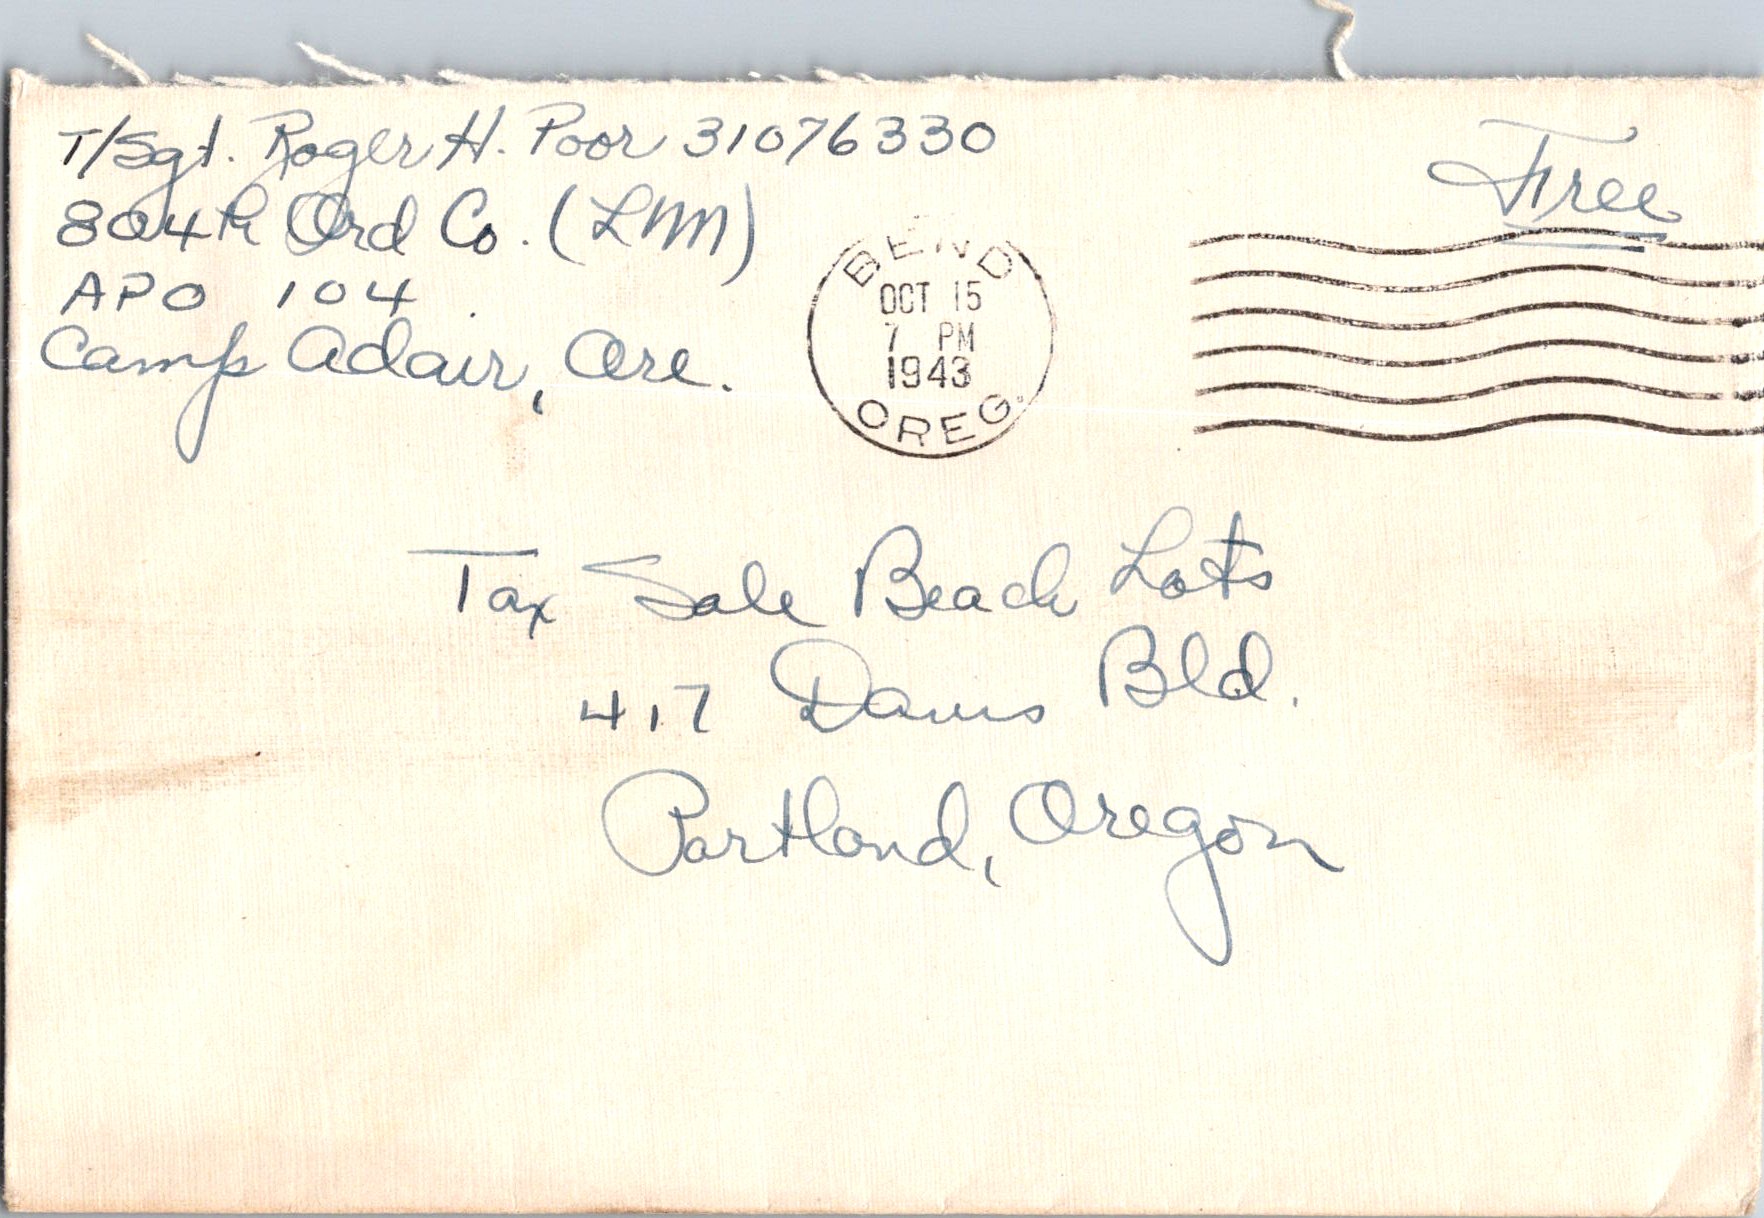 T/Sgt. Roger H. Poor 31076330
804th Ord Co. (LMM)
APO 104
Camp Adair, Ore.
Free
BEND
OCT 15
7 PM
1943
OREG.
Tax Sale Beach Lots
417 Davis Bld.
Portland, Oregon